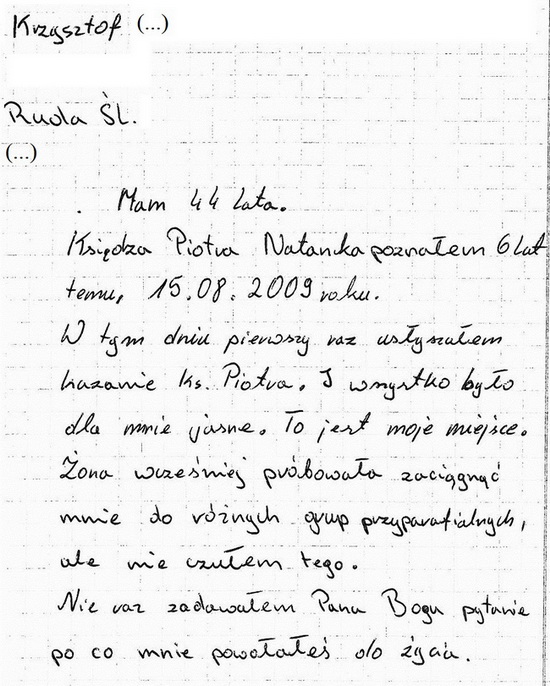 Krzysztof (...)
Ruda Śl.
(...)
. Mam 44 lata.
Księdza Piotra Natanka poznałem 6 lat
temu, 15.08.2009 roku.
W tym dniu pierwszy raz usłyszałem
kazanie ks. Piotra. I wszystko było
dla mnie jasne. To jest moje miejsce.
Żona wcześniej próbowała zaciągnąć
mnie do różnych grup przyparafialnych,
ale nie czułem tego.
Nie raz zadawałem Panu Bogu pytanie
po co mnie powołałeś do życia.